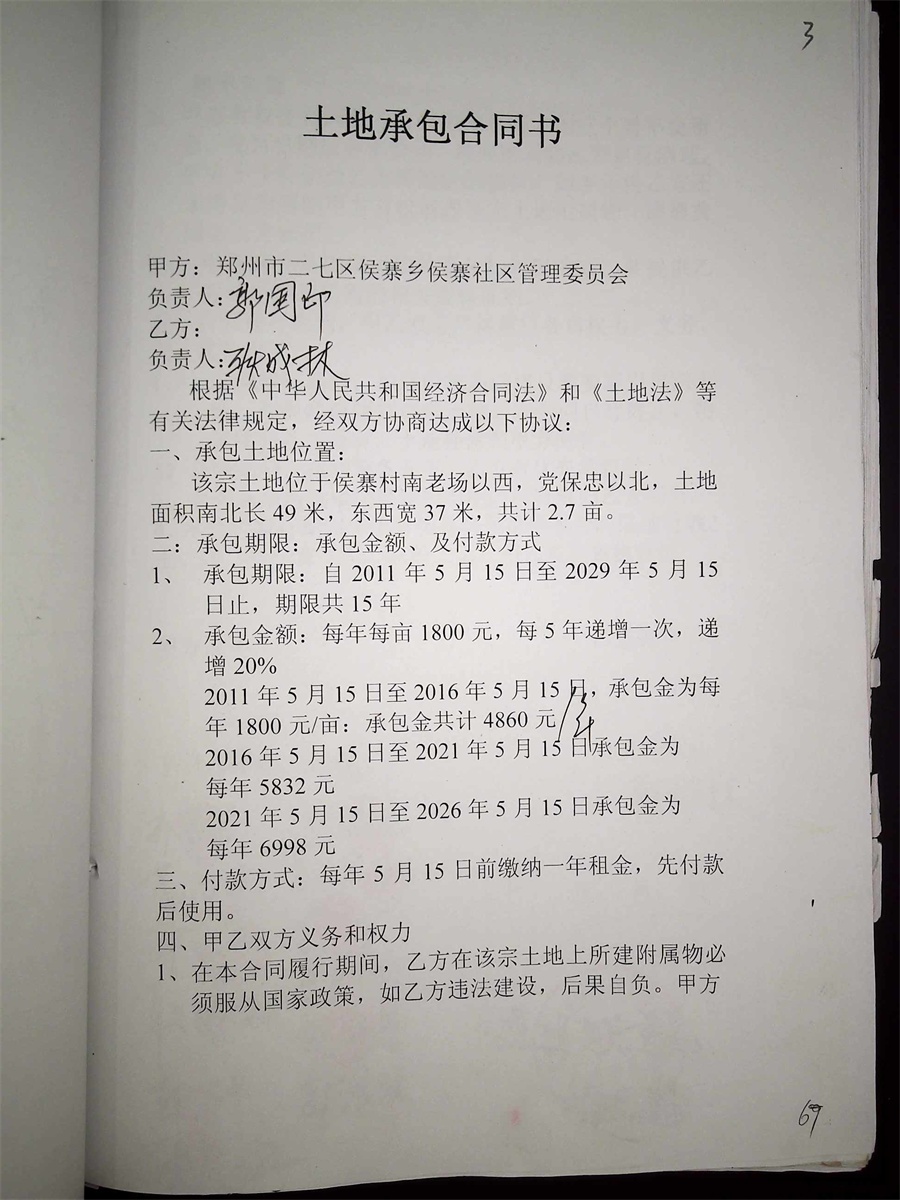 3
土地承包合同书
甲方：郑州市二七区侯寨乡侯寨社区管理委员会
负责人：郭国印
乙方：
负责人：张成林
根据《中华人民共和国经济合同法》和《土地法》等
有关法律规定，经双方协商达成以下协议：
一、承包土地位置：
该宗土地位于侯寨村南老场以西，党保忠以北，土地
面积南北长 49 米，东西宽 37 米，共计 2.7 亩。
二：承包期限：承包金额、及付款方式
1、 承包期限：自 2011 年 5 月 15 日至 2029 年 5 月 15
日止，期限共 15 年
2、 承包金额：每年每亩 1800 元，每 5 年递增一次，递
增 20%
2011 年 5 月 15 日至 2016 年 5 月 15 日，承包金为每
年 1800 元/亩：承包金共计 4860 元/年
2016 年 5 月 15 日至 2021 年 5 月 15 日承包金为
每年 5832 元
2021 年 5 月 15 日至 2026 年 5 月 15 日承包金为
每年 6998 元
三、付款方式：每年 5 月 15 日前缴纳一年租金，先付款
后使用。
四、甲乙双方义务和权力
1、在本合同履行期间，乙方在该宗土地上所建附属物必
须服从国家政策，如乙方违法建设，后果自负。甲方
69